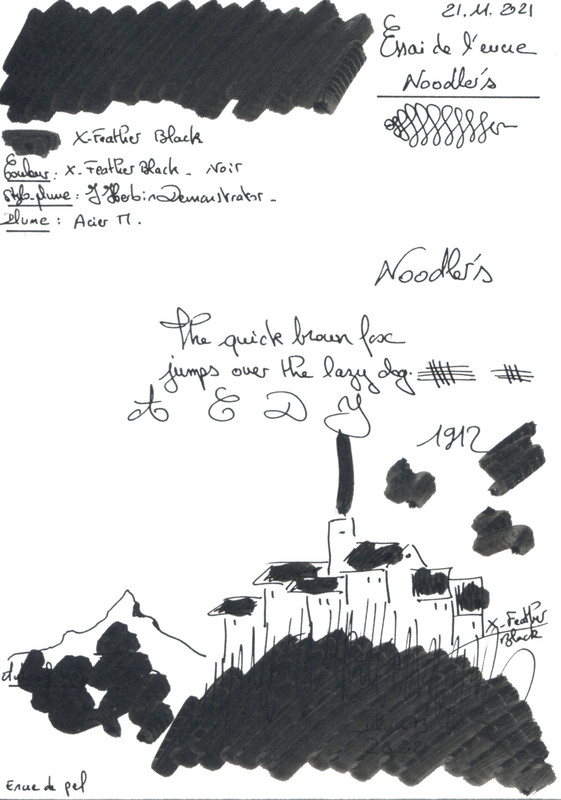 21.11.2021
Essai de l'encre
Noodler's
X-Feather Black
Couleur : X-Feather Black - Noir
Stylo-plume : J Herbin Demonstrator -
Plume : Acier M.
Noodler's
The quick brown fox
jumps over the lazy dog.
A E D Y
1912
X-Feather
Black